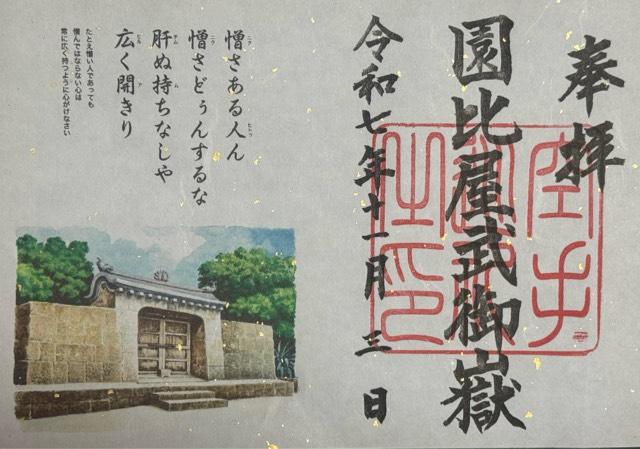 奉拝
園比屋武御嶽
令和七年十一月三日
憎さある人ん
憎さどぅんするな
肝ぬ持ちなしや
広く開きり
たとえ憎い人であっても
憎んではならない心は
常に広く持つように心がけなさい